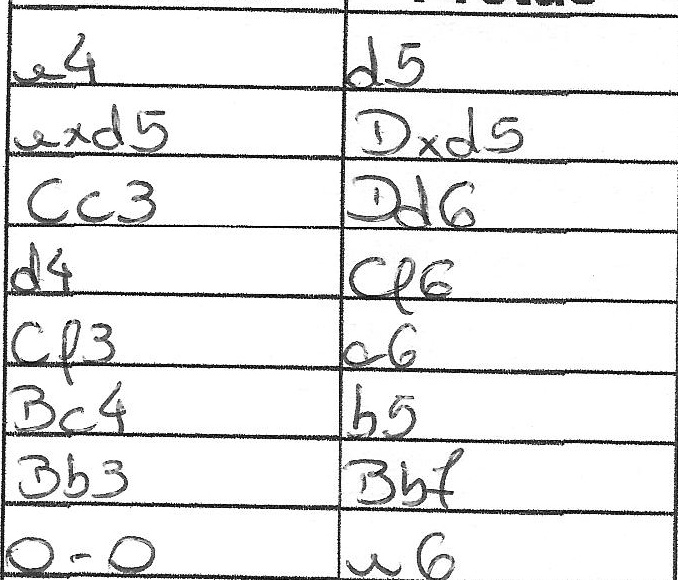 e4 d5
exd5 Dxd5
Cc3 Dd6
d4 Cf6
Cf3 a6
Bc4 b5
Bb3 Bb7
0-0 e6